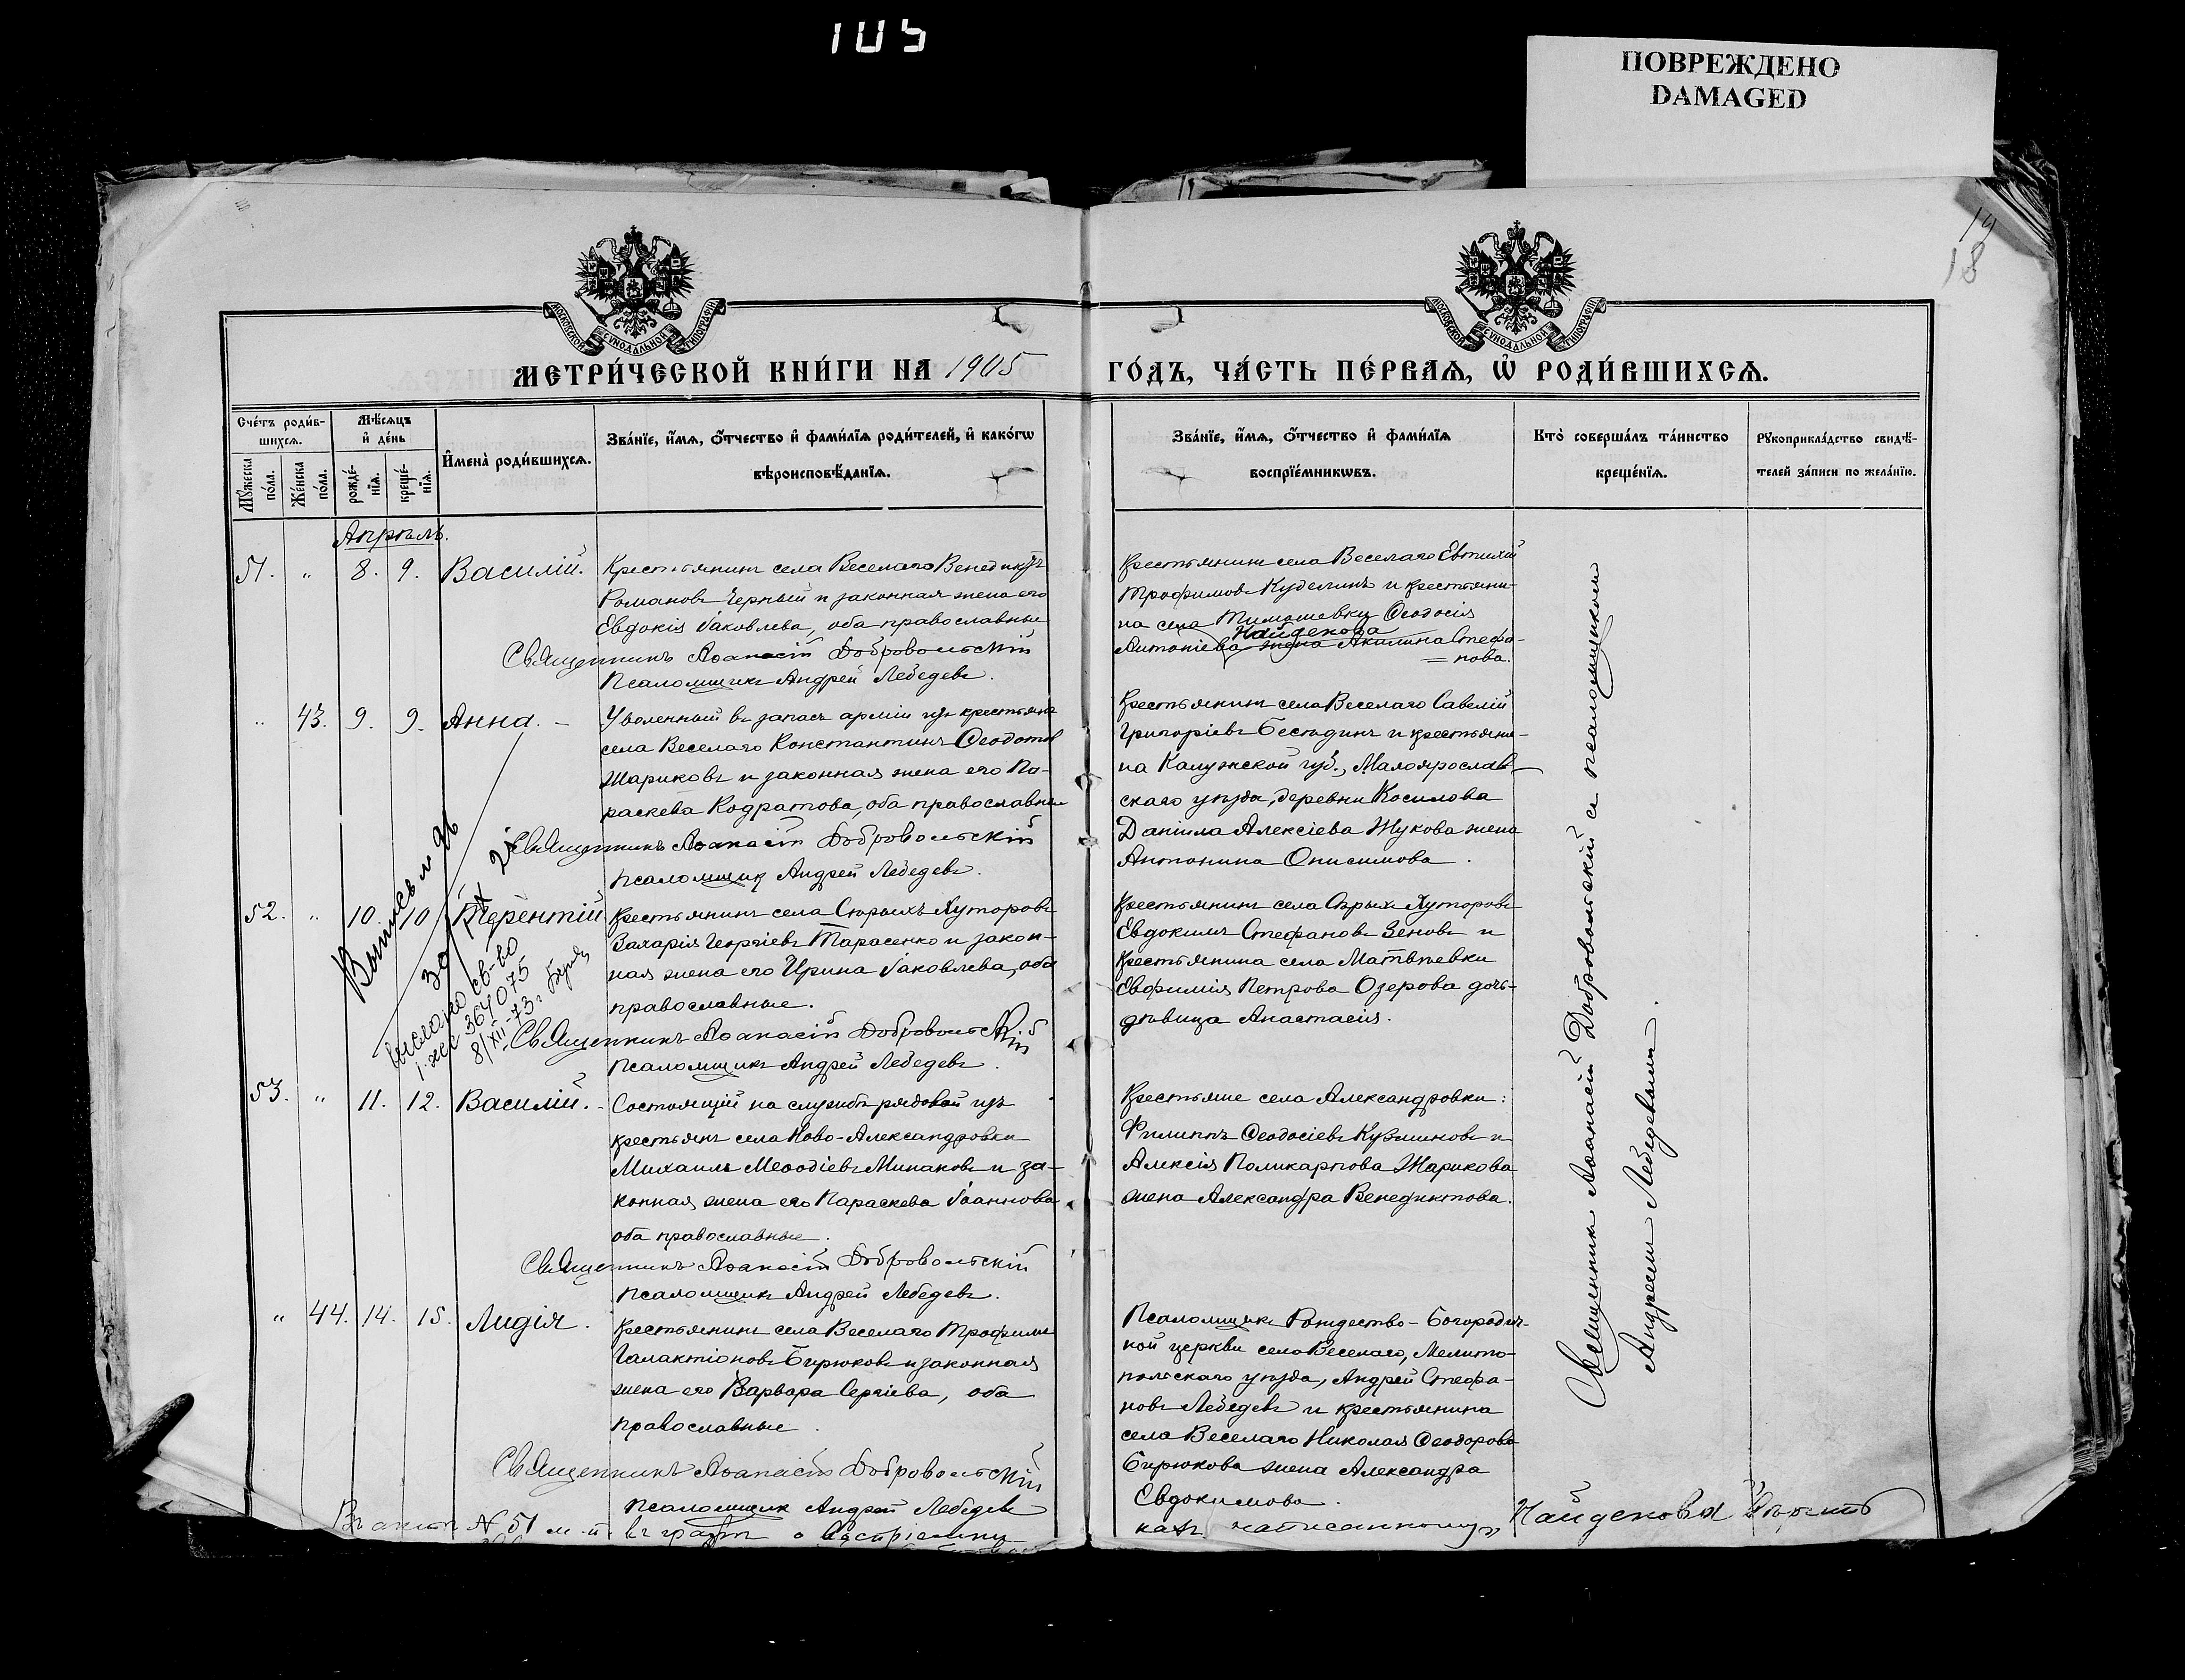 105
ПОВРЕЖДЕНО
DAMAGED
19
18
МОСКОВСКОЙ СУНОДАЛЬНОЙ ТИПОГРАФІИ
МОСКОВСКОЙ СУНОДАЛЬНОЙ ТИПОГРАФІИ
МЕТРИ́ЧЕСКОЙ КНИ́ГИ НА 1905 ГО́ДЪ, ЧА́СТЬ ПЕ́РВАѦ, Ѡ҆ РОДИ́ВШИХСѦ.
Сче́тъ роди́в-
шихсѧ.
Мѹ́жеска
по́ла.
Же́нска
по́ла.
Мѣ́сѧцъ
и҆ де́нь
рожде́-
нїѧ.
креще́-
нїѧ.
И҆мена̀ роди́вшихсѧ.
Зва́нїе, и҆́мѧ, ѻ҆́тчество и҆ фами́лїѧ роди́телей, и҆ како́гѡ
вѣроисповѣ́данїѧ.
Зва́нїе, и҆́мѧ, ѻ҆́тчество и҆ фами́лїѧ
воспрїе́мникѡвъ.
Кто̀ соверша́лъ та́инство
креще́нїѧ.
Рѹкоприкла́дство свидѣ́-
телей за́писи по жела́нїю.
Апрѣль.
51. " 8. 9. Василій.
Крестьянинъ села Веселаго Венедиктъ
Романовъ Черный и законная жена его
Евдокія Іаковлева, оба православные
Священникъ Аѳанасій Добровольскій
Псаломщикъ Андрей Лебедевъ.
Крестьянинъ села Веселаго Евтихій
Трофимовъ Куделинъ и крестьяни-
на села Тимошевки Ѳеодосія
Найденова
Антоніева жена Акилина Стефа-
нова.
" 43. 9. 9. Анна. -
Уволенный въ запасъ арміи изъ крестьянъ
села Веселаго Константинъ Ѳеодотовъ
Жариковъ и законная жена его Па-
раскева Кодратова, оба православные
Священникъ Аѳанасій Добровольскій
Псаломщикъ Андрей Лебедевъ.
Крестьянинъ села Веселаго Савелій
Григоріевъ Бесѣдинъ и крестьяни-
на Калужской губ., Малоярослав-
скаго уѣзда, деревни Косилова
Даніила Алексіева Жукова жена
Антонина Онисимова.
52. " 10. 10. Терентій
Крестьянинъ села Сѣрыхъ Хуторовъ
Захарія Георгіевъ Тарасенко и закон-
ная жена его Ирина Іаковлева, оба
православные.
Священникъ Аѳанасій Добровольскій
Псаломщикъ Андрей Лебедевъ.
Крестьянинъ села Сѣрыхъ Хуторовъ
Евдокимъ Стефановъ Зеновъ и
Крестьянина села Матвѣевки
Евфимія Петрова Озерова дочь-
дѣвица Анастасія.
выслано св-во
364075
8/XII-73г.
53. " 11. 12. Василій. -
Состоящій на службѣ рядовой изъ
крестьянъ села Ново-Александровки
Михаилъ Меѳодіевъ Минаковъ и за-
конная жена его Параскева Іоаннова
оба православные.
Священникъ Аѳанасій Добровольскій
Псаломщикъ Андрей Лебедевъ.
Крестьяне села Александровки:
Филиппъ Ѳеодосіевъ Кузминовъ и
Алексія Поликарпова Жарикова
жена Александра Венедиктова.
" 44. 14. 15. Лидія.
Крестьянинъ села Веселаго Трофимъ
Галактіоновъ Бирюковъ и законная
жена его Варвара Сергіева, оба
православные.
Священникъ Аѳанасій Добровольскій
Псаломщикъ Андрей Лебедевъ
Псаломщикъ Рождество-Богородич-
ной церкви села Веселаго, Мелито-
польскаго уѣзда, Андрей Стефа-
новъ Лебедевъ и крестьянина
села Веселаго Николая Ѳеодорова
Бирюкова жена Александра
Евдокимова.
Священникъ Аѳанасій Добровольскій съ псаломщикомъ
Андреемъ Лебедевымъ.
Въ актѣ № 51 м. п. въ графѣ о воспріемни-
кахъ написанному „Найденова" вѣрить